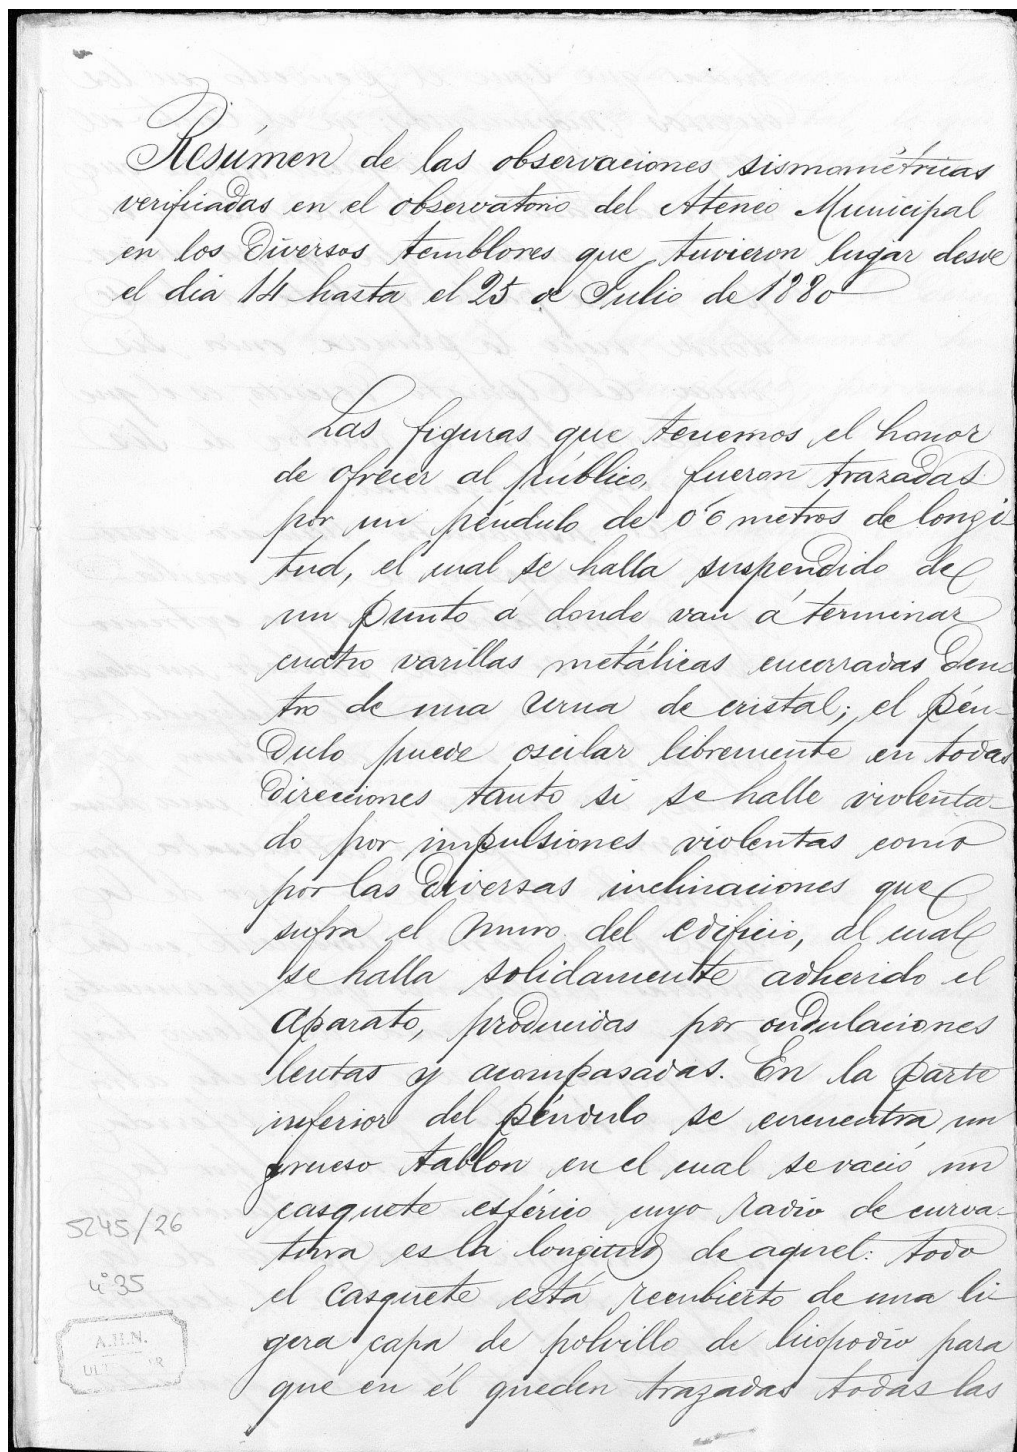 Resúmen de las observaciones sismométricas
verificadas en el observatorio del Ateneo Municipal
en los diversos temblores que tuvieron lugar desde
el dia 14 hasta el 25 de Julio de 1880
Las figuras que tenemos el honor
de ofrecer al público, fueron trazadas
por un péndulo de 0'6 metros de longi-
tud, el cual se halla suspendido de
un punto á donde van á terminar
cuatro varillas metálicas encerradas den-
tro de una urna de cristal; el pén-
dulo puede oscilar libremente en todas
direcciones tanto si se halle violenta-
do por impulsiones violentas como
por las diversas inclinaciones que
sufra el muro del edificio, al cual
se halla solidamente adherido el
aparato, producidas por ondulaciones
lentas y acompasadas. En la parte
inferior del péndulo se encuentra un
grueso tablon en el cual se vació un
casquete esférico cuyo radio de curva-
tura es la longitud de aquel: todo
el casquete está recubierto de una li-
gera capa de polvillo de licopodio para
que en él queden trazadas todas las
5245/26
4º 35
A.H.N.